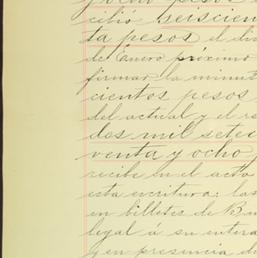 pesos
cibió seiscien
ta pesos el dia
de Enero próximo
firmar la minuta
cientos pesos
del actual y el re
dos mil setec
venta y ocho
recibe en el acto
esta escritura: las
en billetes de Ban
legal á su entera
y en presencia de